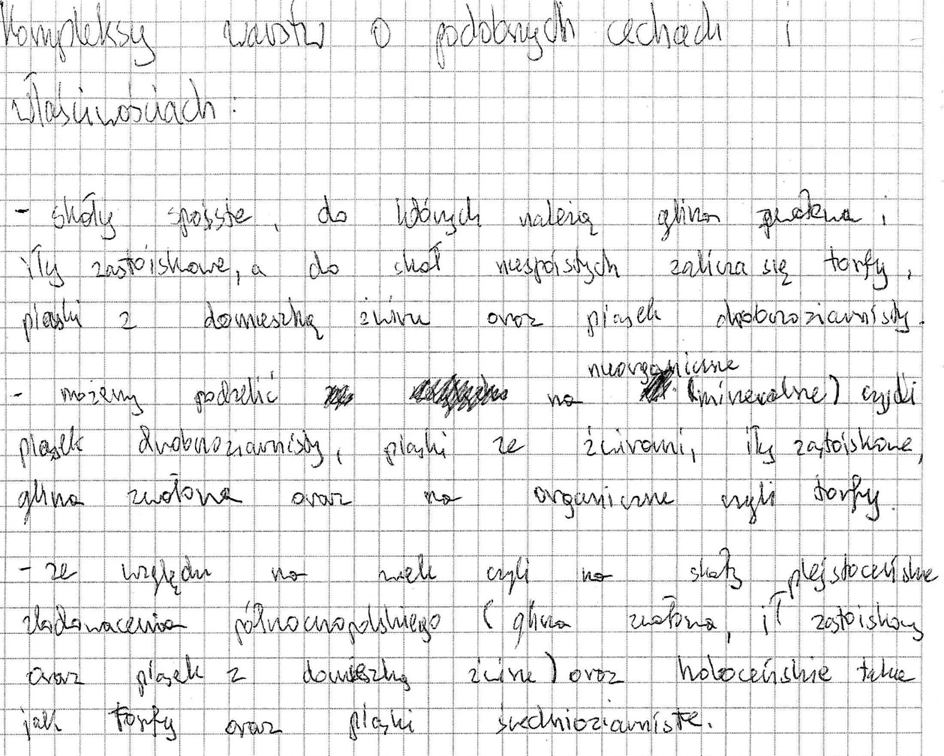 Kompleksy warstw o podobnych cechach i
właściwościach:
- skały spoiste, do których należą glina zwałowa i
iły zastoiskowe, a do skał niespoistych zalicza się torfy,
piaski z domieszką żwiru oraz piasek drobnoziarnisty.
nieorganiczne
- możemy podzielić na (mineralne) czyli
piasek drobnoziarnisty, piaski ze żwirami, iły zastoiskowe,
glina zwałowa oraz na organiczne czyli torfy.
- ze względu na wiek czyli na skały plejstoceńskie
zlodowacenia północnopolskiego (glina zwałowa, ił zastoiskowy
oraz piasek z domieszką żwiru) oraz holoceńskie takie
jak torfy oraz piaski średnioziarniste.